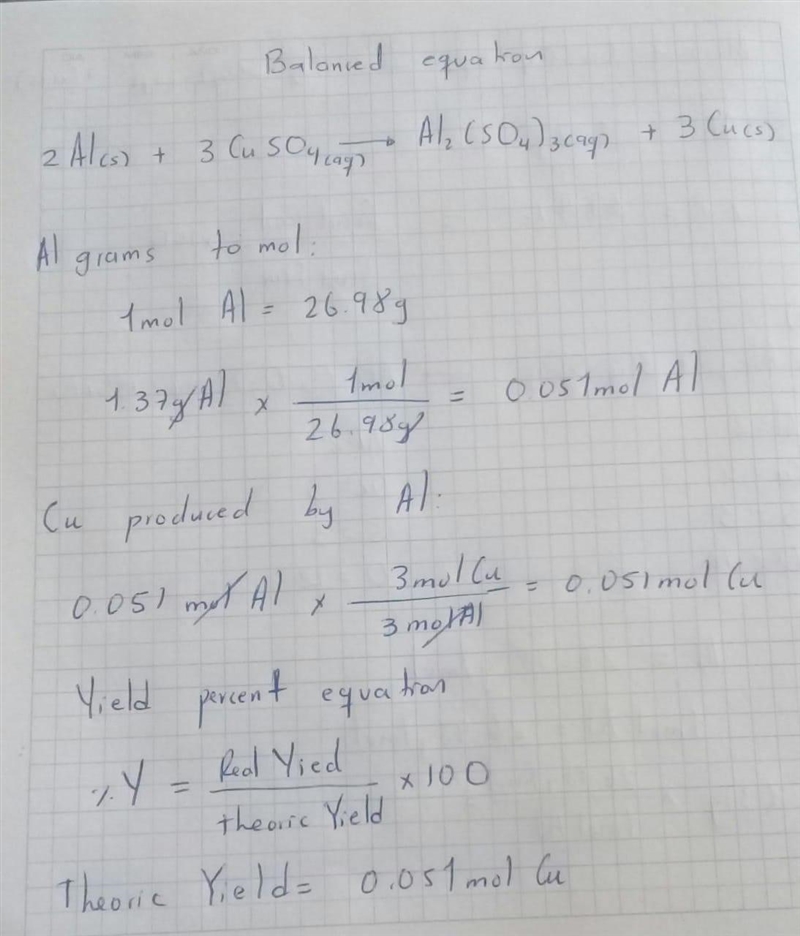 Balanced equation
2 Al(s) + 3 CuSO4(aq) → Al2(SO4)3(aq) + 3 Cu(s)
Al grams to mol:
1mol Al = 26.98g
1.37g Al × 1mol / 26.98g = 0.051mol Al
Cu produced by Al:
0.051 mol Al × 3mol Cu / 3mol Al = 0.051mol Cu
Yield percent equation
%Y = Real Yied / theoric Yield × 100
Theoric Yield = 0.051mol Cu